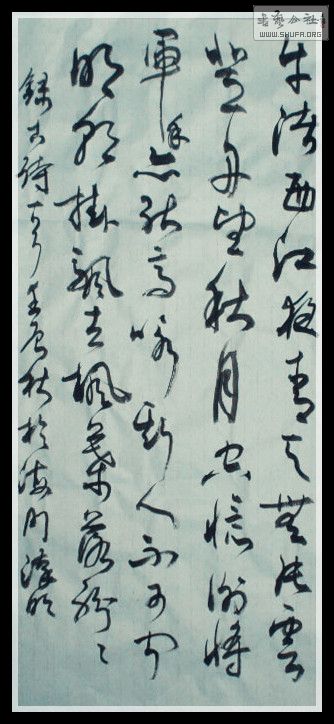 牛渚西江夜青天无片云
登舟望秋月空忆谢将
军余亦能高咏斯人不可闻
明朝挂帆去枫叶落纷々
录古诗一首 秋于海门
书艺公社
WWW.SHUFA.ORG